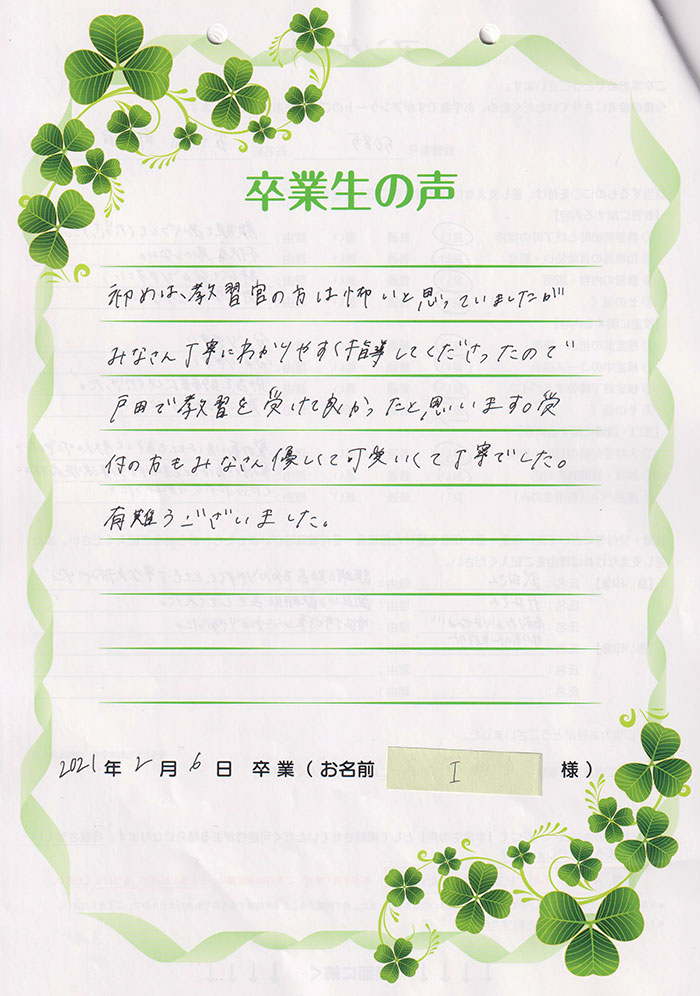 卒業生の声
初めは、教習官の方は怖いと思っていましたが
みなさん丁寧にわかりやすく指導してくださったので
戸田で教習を受けて良かったと思います。受
付の方もみなさん優しくて可愛いくて丁寧でした。
有難うございました。
2021年2月6日 卒業(お名前 I 様)